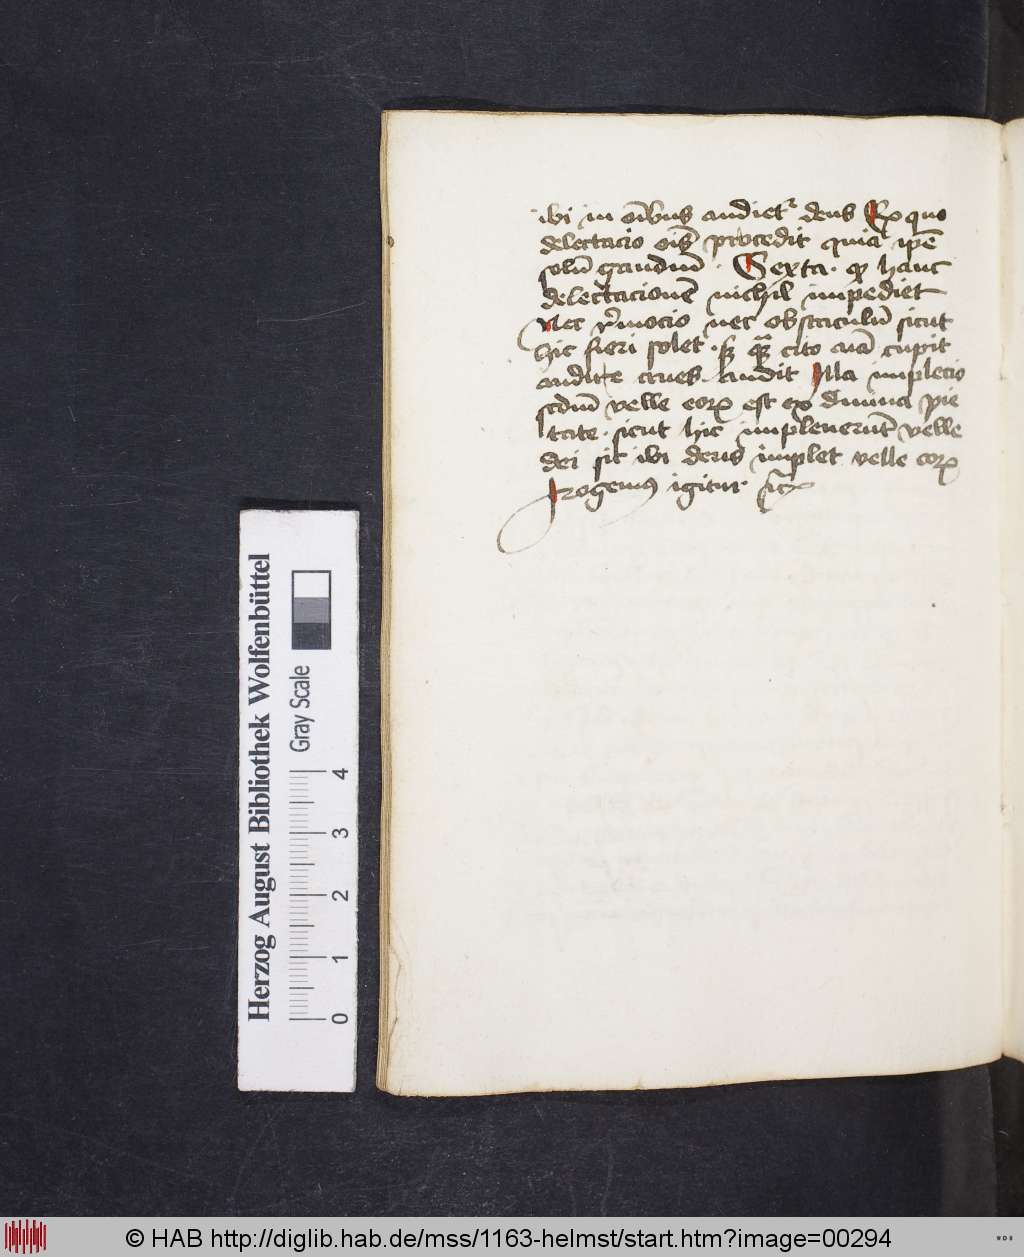 ibi in oi̅bus audietᷣ deus Ex quo
delectacio oi̅s procedit quia ip̅e
solu̅ gaudiu̅ . Sexta . ꝙ hanc
delectacione̅ nichil impediet
Nec mocio nec obstaculu̅ sicut
hic fieri solet . cito cupit
audire audit Illa implecio
scdm̅ velle eoꝝ est ex diuina pie
tate . sicut hic impleuerūt velle
dei sic ibi deus implet velle eoꝝ
Rogemus igitur
Herzog August Bibliothek Wolfenbüttel
Gray Scale
0 1 2 3 4
© HAB http://diglib.hab.de/mss/1163-helmst/start.htm?image=00294